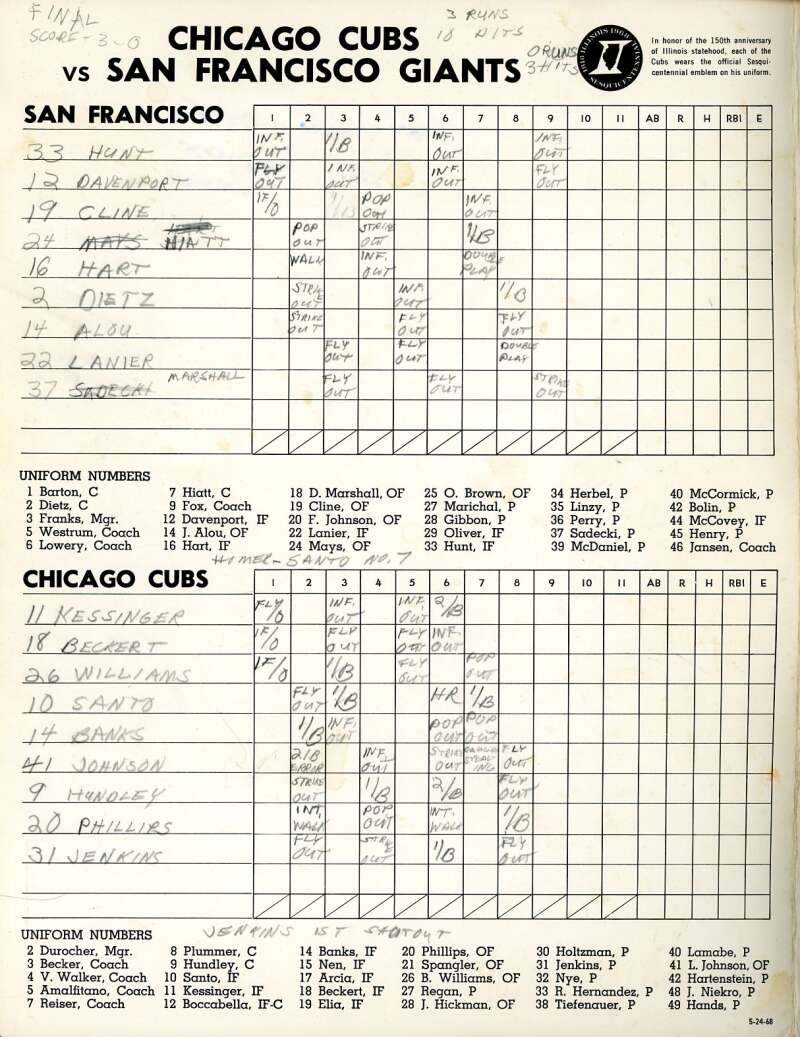 FINAL
SCORE-3-0
3 RUNS
10 HITS
0 RUNS
3 HITS
CHICAGO CUBS
VS SAN FRANCISCO GIANTS
ILLINOIS 1968
SESQUICENTENNIAL
In honor of the 150th anniversary
of Illinois statehood, each of the
Cubs wears the official Sesqui-
centennial emblem on his uniform.
SAN FRANCISCO 1 2 3 4 5 6 7 8 9 10 11 AB R H RBI E
33 HUNT INF. OUT 1/B INF. OUT INF. OUT
12 DAVENPORT FLY OUT INF. OUT INF. OUT FLY OUT
19 CLINE IF/O 1/B POP OUT INF. OUT
24 MAYS HIATT POP OUT STRIKE OUT 1/B
16 HART WALK INF. OUT DOUBLE PLAY
2 DIETZ STRIKE OUT INF. OUT 1/B
14 ALOU STRIKE OUT FLY OUT FLY OUT
22 LANIER FLY OUT FLY OUT DOUBLE PLAY
37 SADECKI MARSHALL FLY OUT FLY OUT STRIKE OUT
UNIFORM NUMBERS
1 Barton, C 7 Hiatt, C 18 D. Marshall, OF 25 O. Brown, OF 34 Herbel, P 40 McCormick, P
2 Dietz, C 9 Fox, Coach 19 Cline, OF 27 Marichal, P 35 Linzy, P 42 Bolin, P
3 Franks, Mgr. 12 Davenport, IF 20 F. Johnson, OF 28 Gibbon, P 36 Perry, P 44 McCovey, IF
5 Westrum, Coach 14 J. Alou, OF 22 Lanier, IF 29 Oliver, IF 37 Sadecki, P 45 Henry, P
6 Lowery, Coach 16 Hart, IF 24 Mays, OF 33 Hunt, IF 39 McDaniel, P 46 Jansen, Coach
HOMER-SANTO NO. 7
CHICAGO CUBS 1 2 3 4 5 6 7 8 9 10 11 AB R H RBI E
11 KESSINGER FLY/O INF. OUT INF. OUT 2/B
18 BECKERT IF/O FLY OUT FLY OUT INF. OUT
26 WILLIAMS IF/O 1/B FLY OUT POP OUT
10 SANTO FLY OUT 1/B HR 1/B
14 BANKS 1/B INF. OUT POP OUT POP OUT
41 JOHNSON 2/B ERROR INF. OUT STRIKE OUT CAUGHT STEALING FLY OUT
9 HUNDLEY STRIKE OUT 1/B 2/B FLY OUT
20 PHILLIPS INT. WALK POP OUT INT. WALK 1/B
31 JENKINS FLY OUT STRIKE OUT 1/B FLY OUT
UNIFORM NUMBERS JENKINS 1ST SHUTOUT
2 Durocher, Mgr. 8 Plummer, C 14 Banks, IF 20 Phillips, OF 30 Holtzman, P 40 Lamabe, P
3 Becker, Coach 9 Hundley, C 15 Nen, IF 21 Spangler, OF 31 Jenkins, P 41 L. Johnson, OF
4 V. Walker, Coach 10 Santo, IF 17 Arcia, IF 26 B. Williams, OF 32 Nye, P 42 Hartenstein, P
5 Amalfitano, Coach 11 Kessinger, IF 18 Beckert, IF 27 Regan, P 33 R. Hernandez, P 48 J. Niekro, P
7 Reiser, Coach 12 Boccabella, IF-C 19 Elia, IF 28 J. Hickman, OF 38 Tiefenauer, P 49 Hands, P
5-24-68